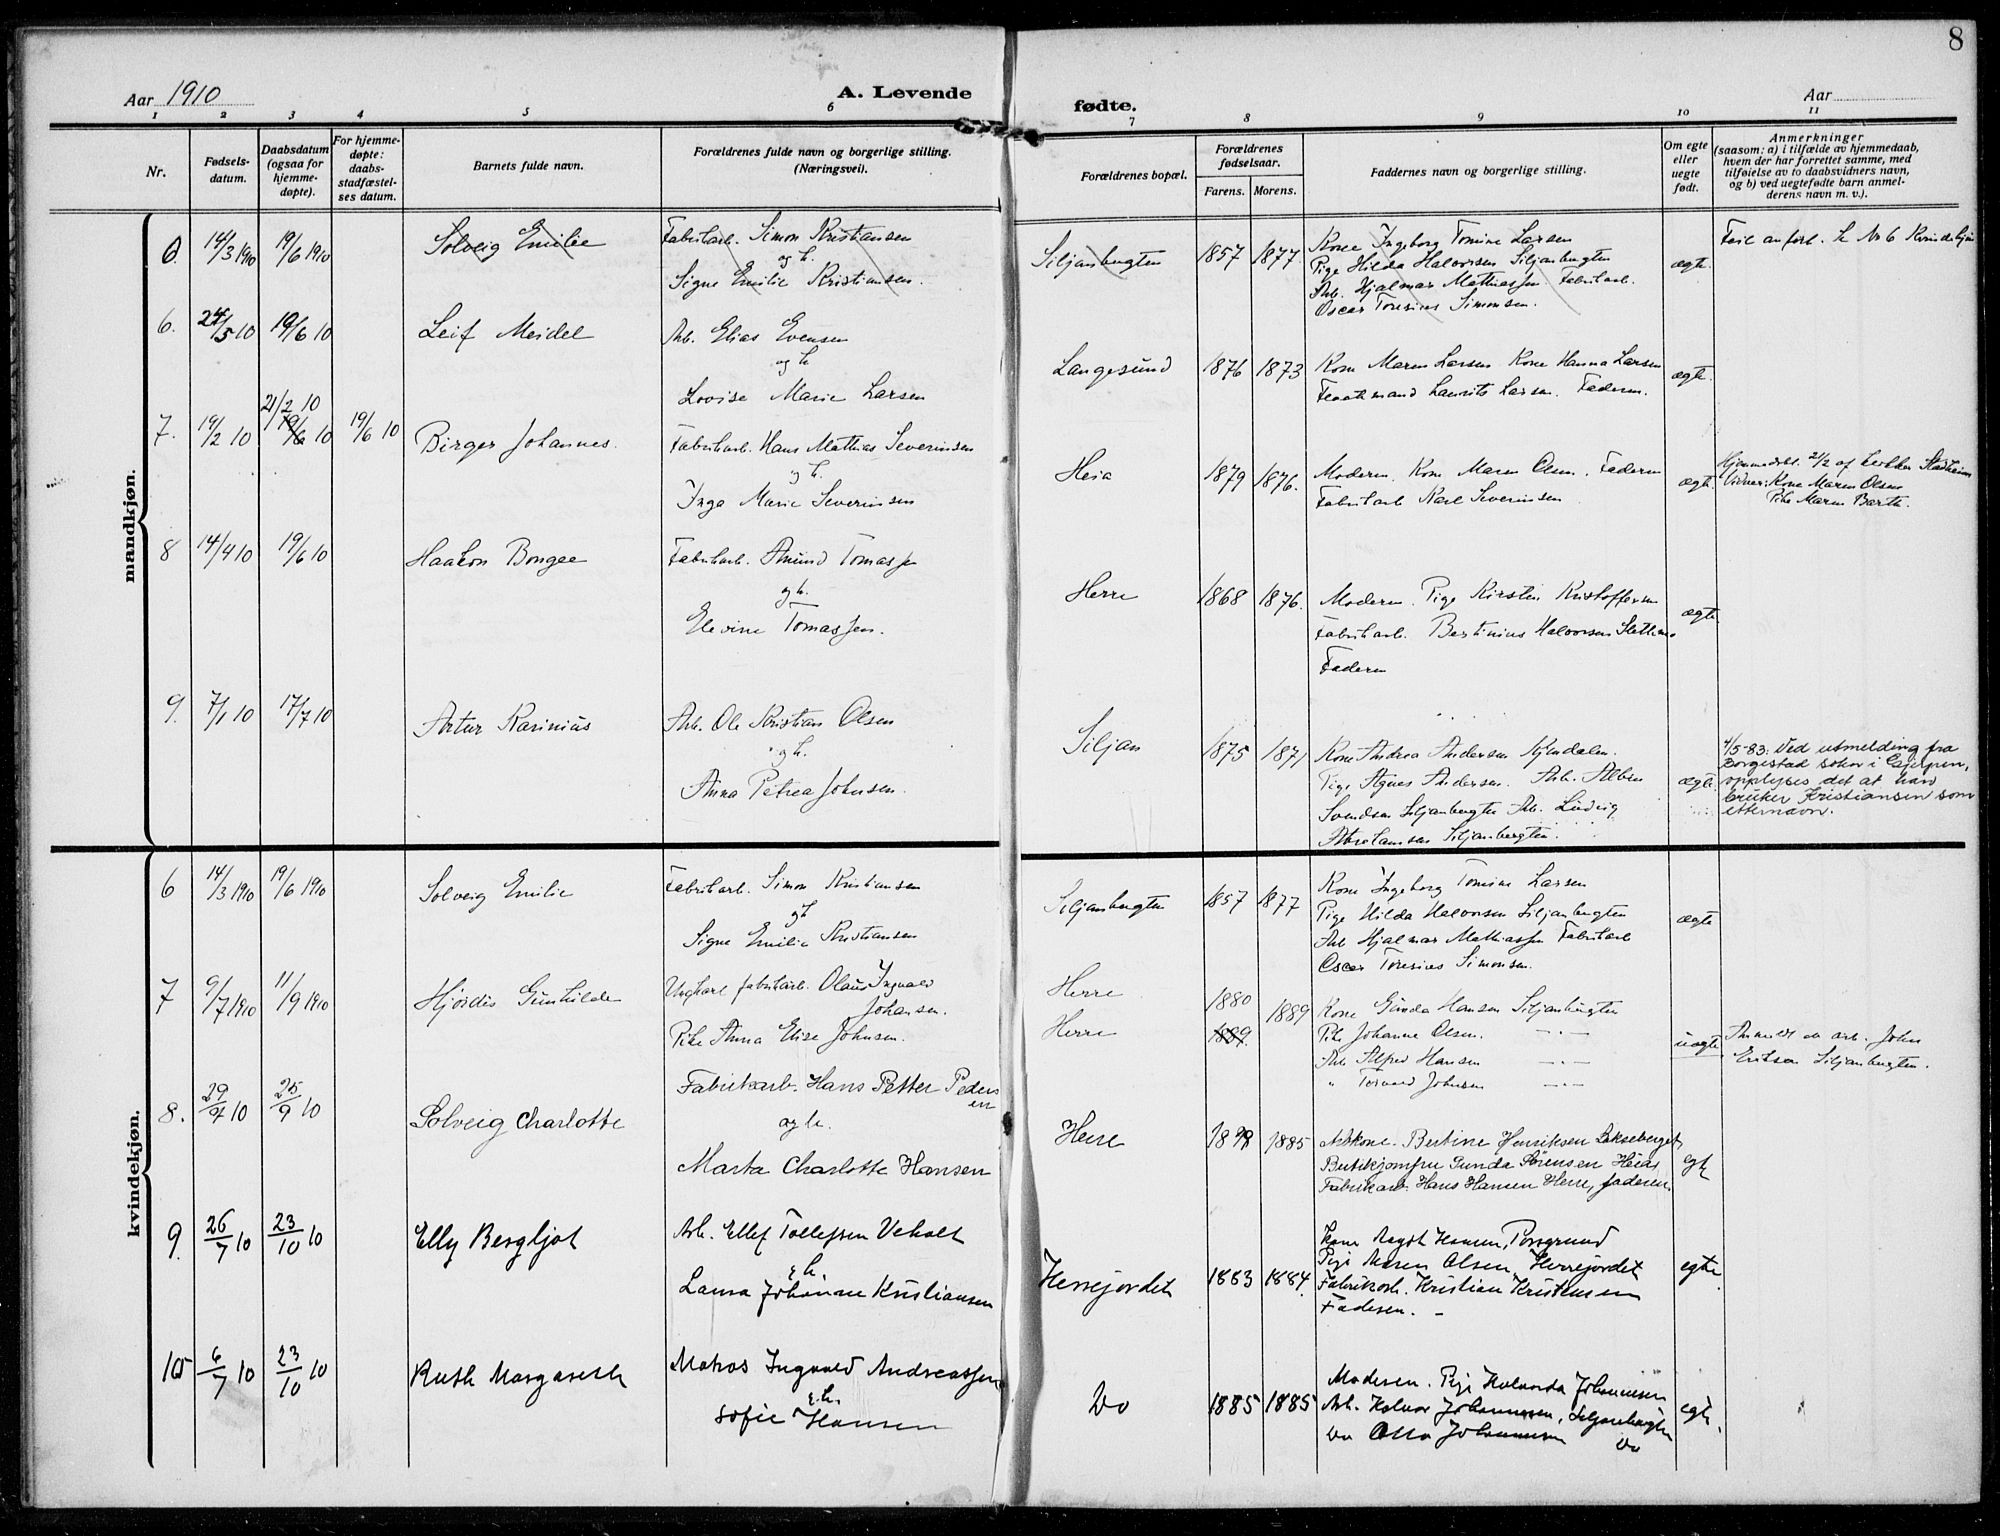 8
Aar 1910
A. Levende
fødte.
Aar
1 2 3 4 5 6 7 8 9 10 11
Nr.
Fødsels-
datum.
Daabsdatum
(ogsaa for
hjemme-
døpte).
For hjemme-
døpte:
daabs-
stadfæstel-
ses datum.
Barnets fulde navn.
Forældrenes fulde navn og borgerlige stilling.
(Næringsvei).
Forældrenes bopæl.
Forældrenes
fødselsaar.
Farens. Morens.
Faddernes navn og borgerlige stilling.
Om egte
eller
uegte
født.
Anmerkninger
(saasom: a) i tilfælde av hjemmedaab,
hvem der har forrettet samme, med
tilføielse av to daabsvidners navn,
og b) ved uegtefødte barn anmel-
derens navn m. v.).
mandkjøn.
14/3 1910 19/6 1910 Solveig Emilie
Fabrikarb. Simon Kristiansen
og h.
Signe Emilie Kristiansen.
Siljanbugten 1857 1877.
Kone Ingeborg Tomine Larsen
Pige Hilda Halvorsen Siljanbugten
Arb. Hjalmar Mathiassen. Fabrikarb.
Oscar Toresius Simonsen.
ægte.
Feil anført. Se No 6
6. 24/5 10 19/6 10 Leif Meidel
Arb. Elias Evensen
og h
Lovise Marie Larsen
Langesund 1876 1873
Kone Maren Larsen Kone Hanna Larsen
Laurits Larsen. Faderen.
ægte.
7. 19/2 10 21/2 10 19/6 10 19/6 10 Birger Johannes.
Fabrikarb. Hans Mathias Severinsen
og h.
Inga Marie Severinsen
Heia 1879 1876.
Moderen. Kone Maren Olsen. Faderen
Fabrikarb Karl Severinsen
ægte.
Hjemmedøbt. 21/2 af
Vidner: Kone Maren Olsen
Pike Maren Barth.
8 14/4 10 19/6 10 Haakon
Fabrikarb. Amund Tomassen
og h.
Elevine Tomassen.
Herre 1868 1876.
Moderen. Pige Kirsten Kristoffersen
Fabrikarb. Bertinius Halvorsen
Faderen
ægte.
9. 7/1 10 17/7 10 Artur Karinius
Arb. Ole Kristian Olsen
og h.
Anna Petrea Johnsen.
Siljan 1875 1871
Kone Andrea Andersen
Pige Agnes Andersen. Arb. Albin
Svendsen Siljanbugten Arb. Ludvig
Abrahamsen Siljanbugten.
ægte.
4/5-83: Ved utmelding fra
Borgestad sokn i Gjerpen,
opplyses det at han
bruker Kristiansen som
etternavn.
kvindekjøn.
6 14/3 1910 19/6 1910 Solveig Emilie
Fabrikarb. Simon Kristiansen
og h
Signe Emilie Kristiansen
Siljanbugten 1857 1877
Kone Ingeborg Tomine Larsen
Pige Hilda Halvorsen Siljanbugten
Arb Hjalmar Mathiassen Fabrikarb
Oscar Toresius Simonsen.
ægte
7 9/7 1910 11/9 1910 Hjördis Gunhilde
Ungkarl fabrikarb. Olaus Ingvald
Johansen.
Pike Anna Elise Johnsen.
Herre
Herre
1880 1889
1889.
Kone Gunda Hansen Siljanbugten
Pike Johanne Olsen. —"—
Arb Alfred Hansen —"—
" Torvald Johnsen —"—
uægte
Anmeldt av arb. John
Eriksen Siljanbugten.
8. 29/7 10 25/9 10 Solveig Charlotte
Fabrikarb. Hans Petter Peders
en
og h.
Marta Charlotte Hansen
Herre 1885
Arbkone. Bertine Henriksen
Butikjomfru Gunda Sørensen Heia,
Fabrikarb. Hans Hansen Herre, faderen.
egte
9. 26/7 10 23/10 10 Elly Bergljot
Arb. Ellef Tollefsen Veholt
g h.
Laura Johanne Kristiansen
Herrejordet 1883 1884.
Kone Hansen, Porsgrund
Pige Maren Olsen Herrejordet
Fabrikarb. Kristian Kristensen
Faderen. -
egte
10 6/7 10 23/10 10 Ruth Margareth
Matros Ingvald Andreassen
g h.
Sofie Hansen
Do 1885 1885
Moderen. Pige Johannesen
Arb. Halvor Johannesen, Siljanbugten
Do Otto Johannesen Do
egte.